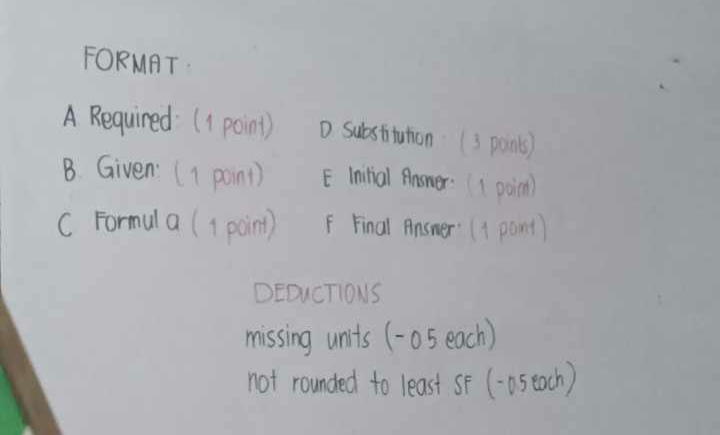 FORMAT.
A. Required: (1 point)
B. Given: (1 point)
C Formula (1 point)
D. Substitution: (3 points)
E Initial Answer: (1 point)
F Final Answer: (1 point)
DEDUCTIONS
missing units (-0.5 each)
not rounded to least SF (-0.5 each)